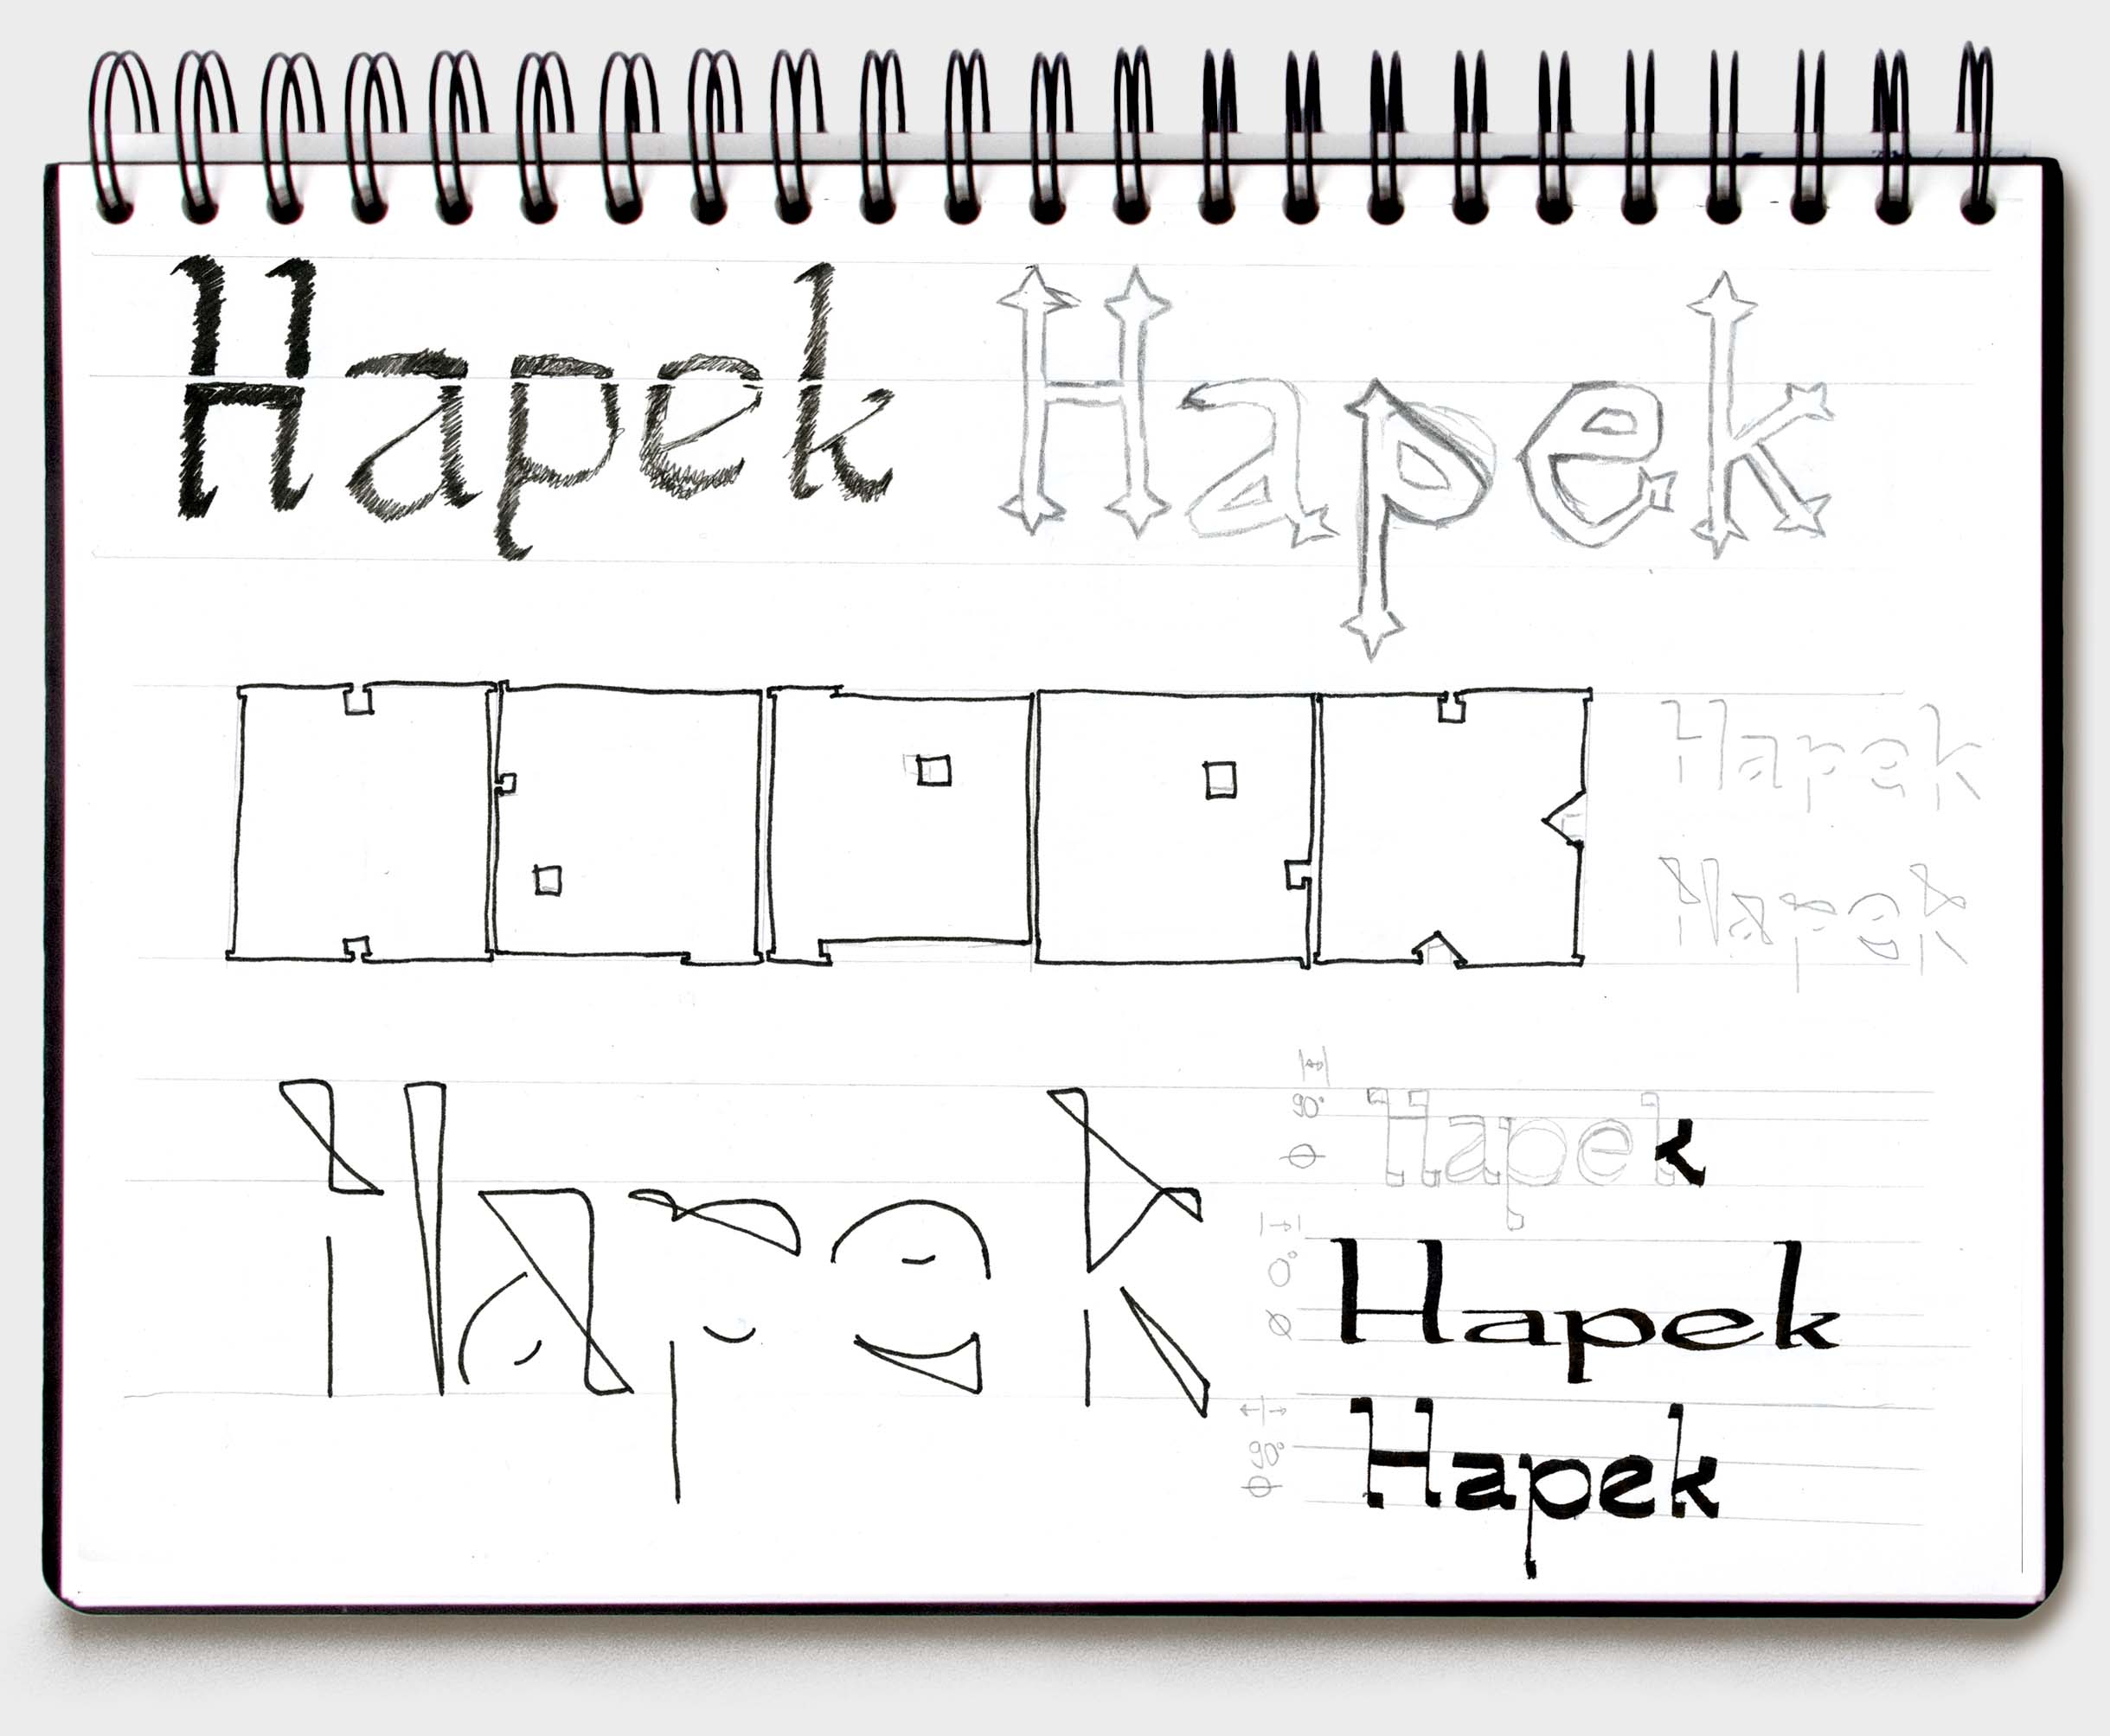 Hapek Hapek
Hapek
Hapek
Hapek
Hapek
90°
Hapek
0°
Hapek
90°
Hapek